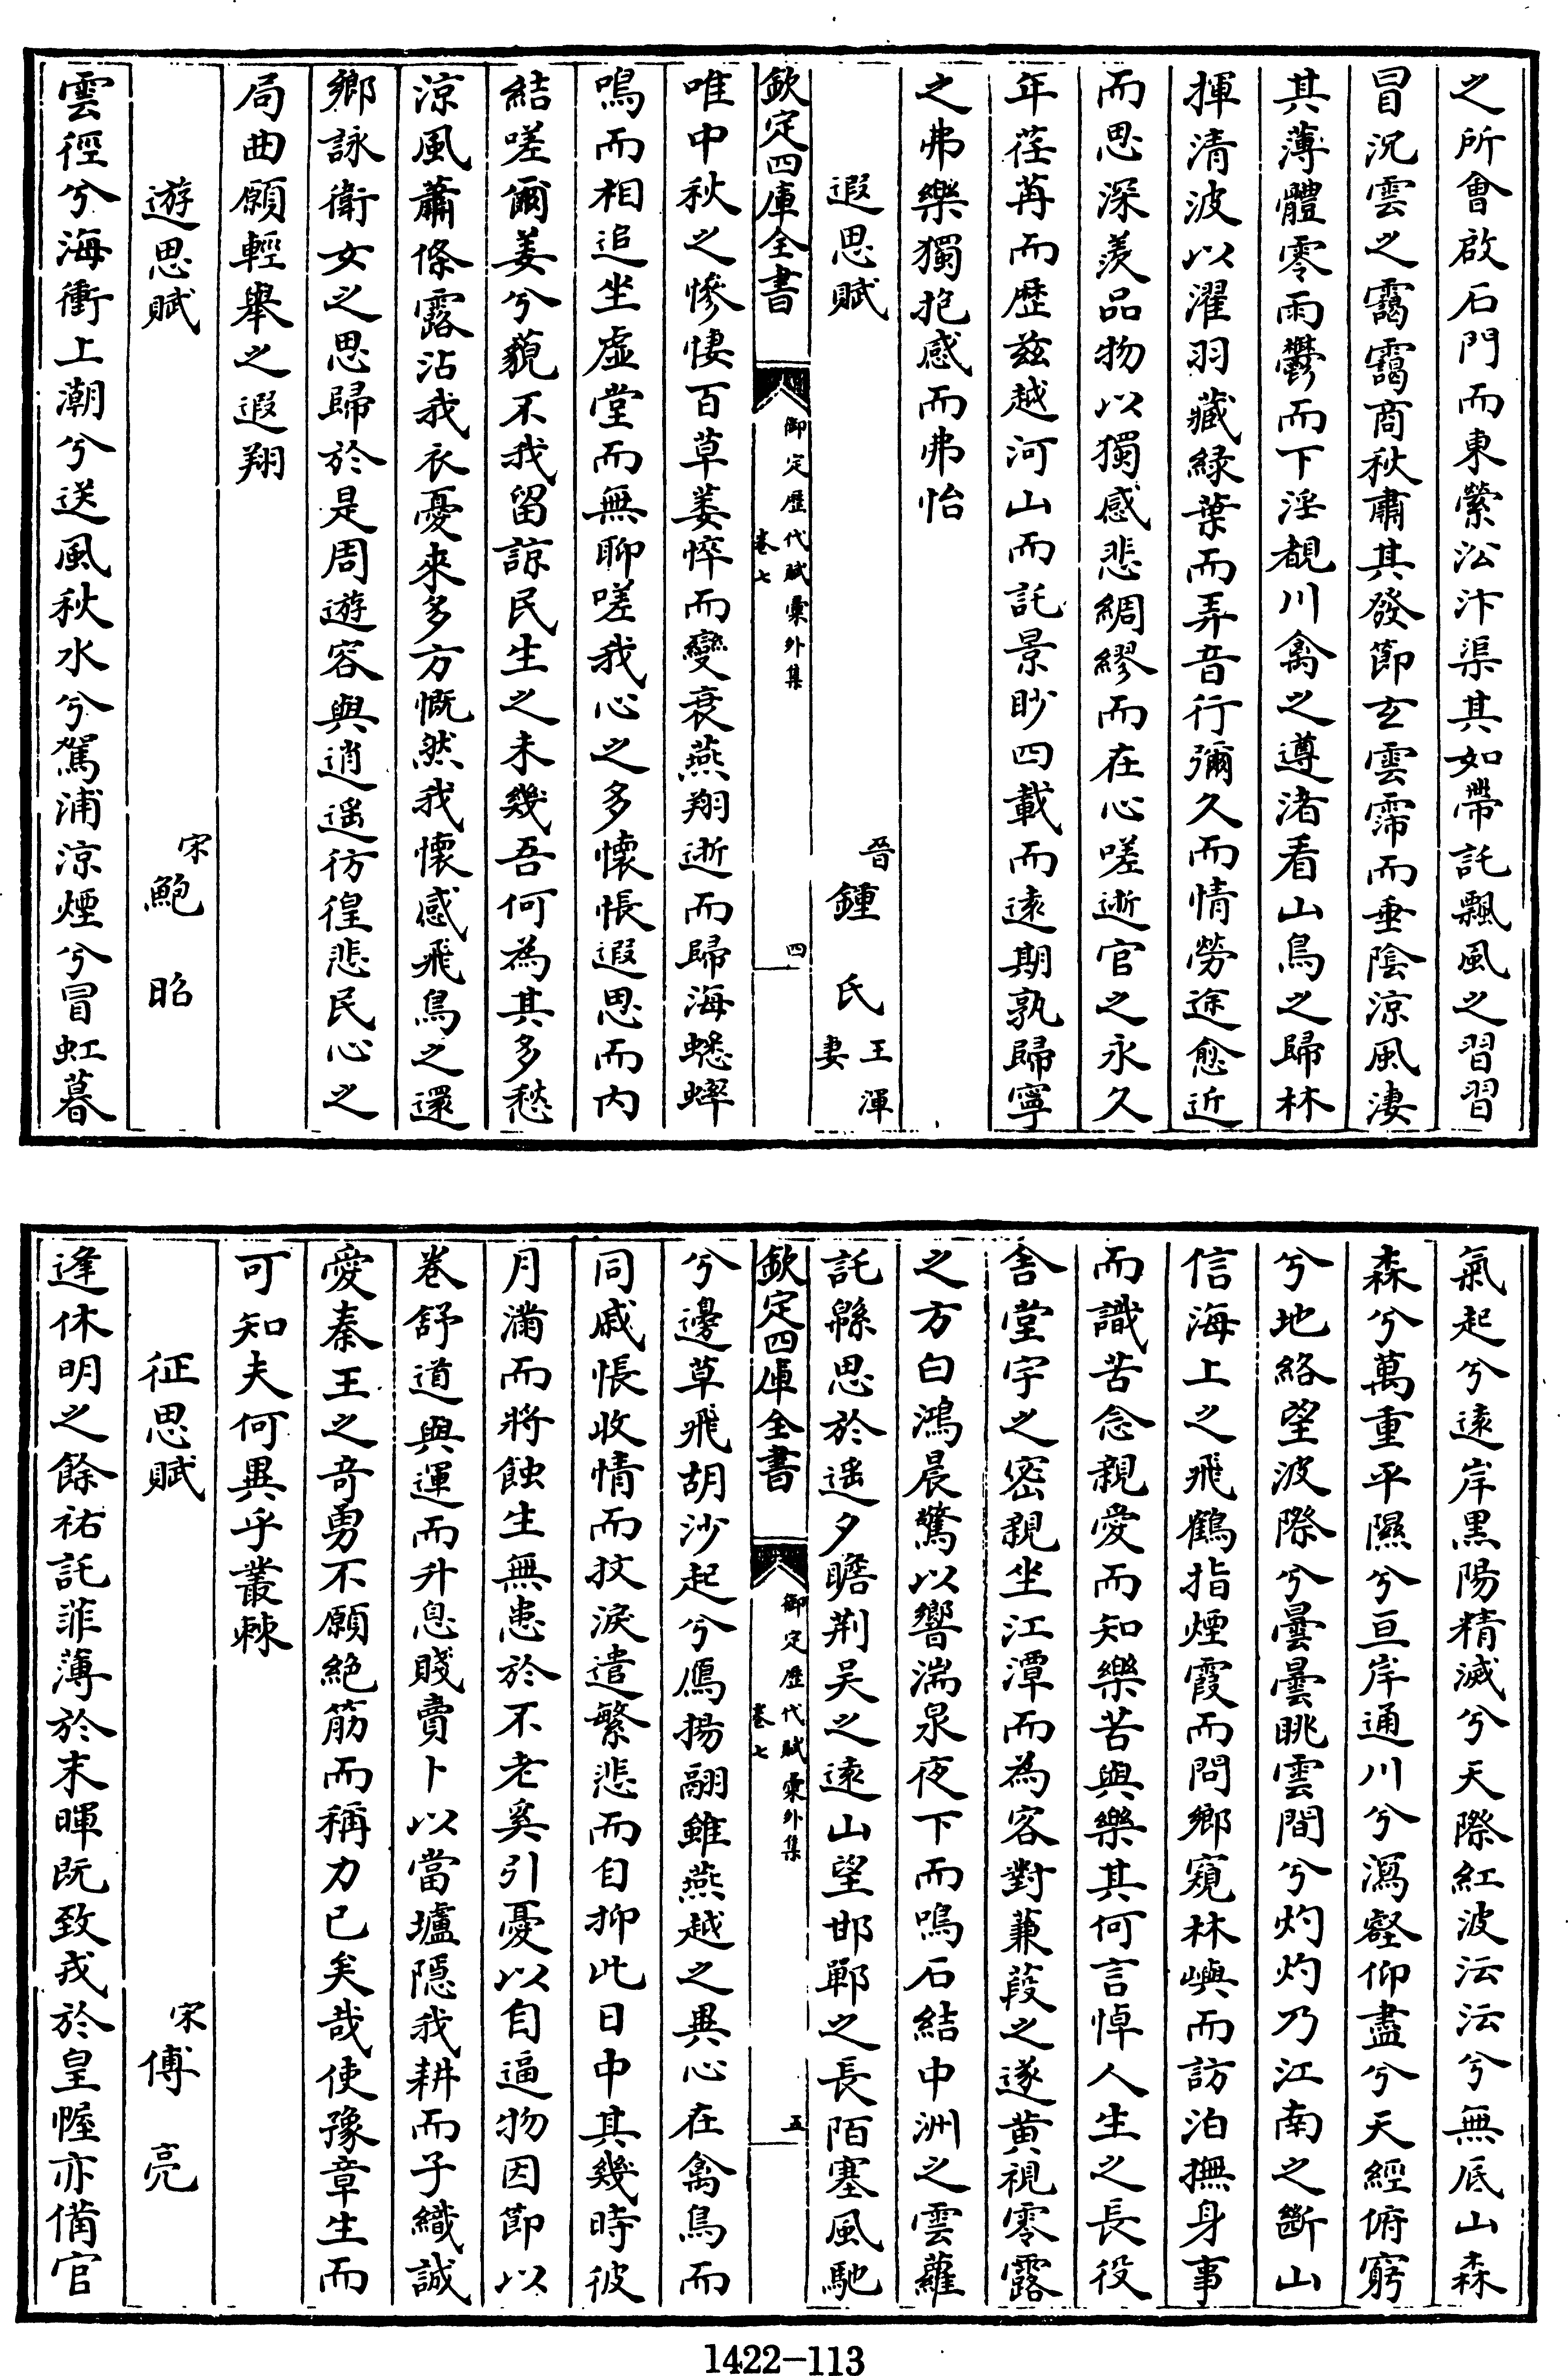 之所會啟石門而東縈汃汴渠其如帶託飄風之習習
冒沉雲之靄靄商秋肅其發節玄雲霈而垂陰涼風淒
其薄體零雨鬱而下淫覩川禽之遵渚看山鳥之歸林
揮清波以濯羽藏綠葉而弄音行彌久而情勞途愈近
而思深羨品物以獨感悲綢繆而在心嗟逝官之永久
年荏苒而歴兹越河山而託景眇四載而遠期孰歸寧
之弗樂獨抱感而弗怡
遐思賦 晉鍾氏王渾妻
欽定四庫全書 御定歴代賦彙外集卷七 四
唯中秋之慘悽百草萎悴而變衰燕翔逝而歸海蟋蟀
鳴而相追坐虚堂而無聊嗟我心之多懷悵遐思而内
結嗟爾姜兮藐不我留諒民生之未幾吾何為其多愁
涼風蕭條露沾我衣憂來多方慨然我懷感飛鳥之還
鄉詠衛女之思歸於是周遊容與逍遥彷徨悲民心之
局曲願輕舉之遐翔
遊思賦 宋鮑昭
雲徑兮海衝上潮兮送風秋水兮駕浦涼煙兮冒虹暮
氣起兮遠岸黒陽精滅兮天際紅波沄沄兮無底山森
森兮萬重平隰兮亘岸通川兮瀉壑仰盡兮天經俯窮
兮地絡望波際兮曇曇眺雲間兮灼灼乃江南之斷山
信海上之飛鶴指煙霞而問鄉窺林嶼而訪泊撫身事
而識苦念親愛而知樂苦與樂其何言悼人生之長役
舍堂宇之密親坐江潭而為客對蒹葭之遂黄視零露
之方白鴻晨驚以響湍泉夜下而鳴石結中洲之雲蘿
託緜思於遥夕瞻荆吴之遠山望邯鄲之長陌塞風馳
欽定四庫全書 御定歴代賦彙外集卷七 五
兮邊草飛胡沙起兮鴈揚翮雖燕越之異心在禽鳥而
同戚悵收情而抆淚遣繁悲而自抑此日中其幾時彼
月滿而將蝕生無患於不老奚引憂以自逼物因節以
卷舒道與運而升息賤賣卜以當壚隱我耕而子織誠
愛秦王之奇勇不願絶筋而稱力已矣哉使豫章生而
可知夫何異乎叢棘
征思賦 宋傅亮
逢休明之餘祐託菲薄於末暉既致戎於皇幄亦備官
1422-113